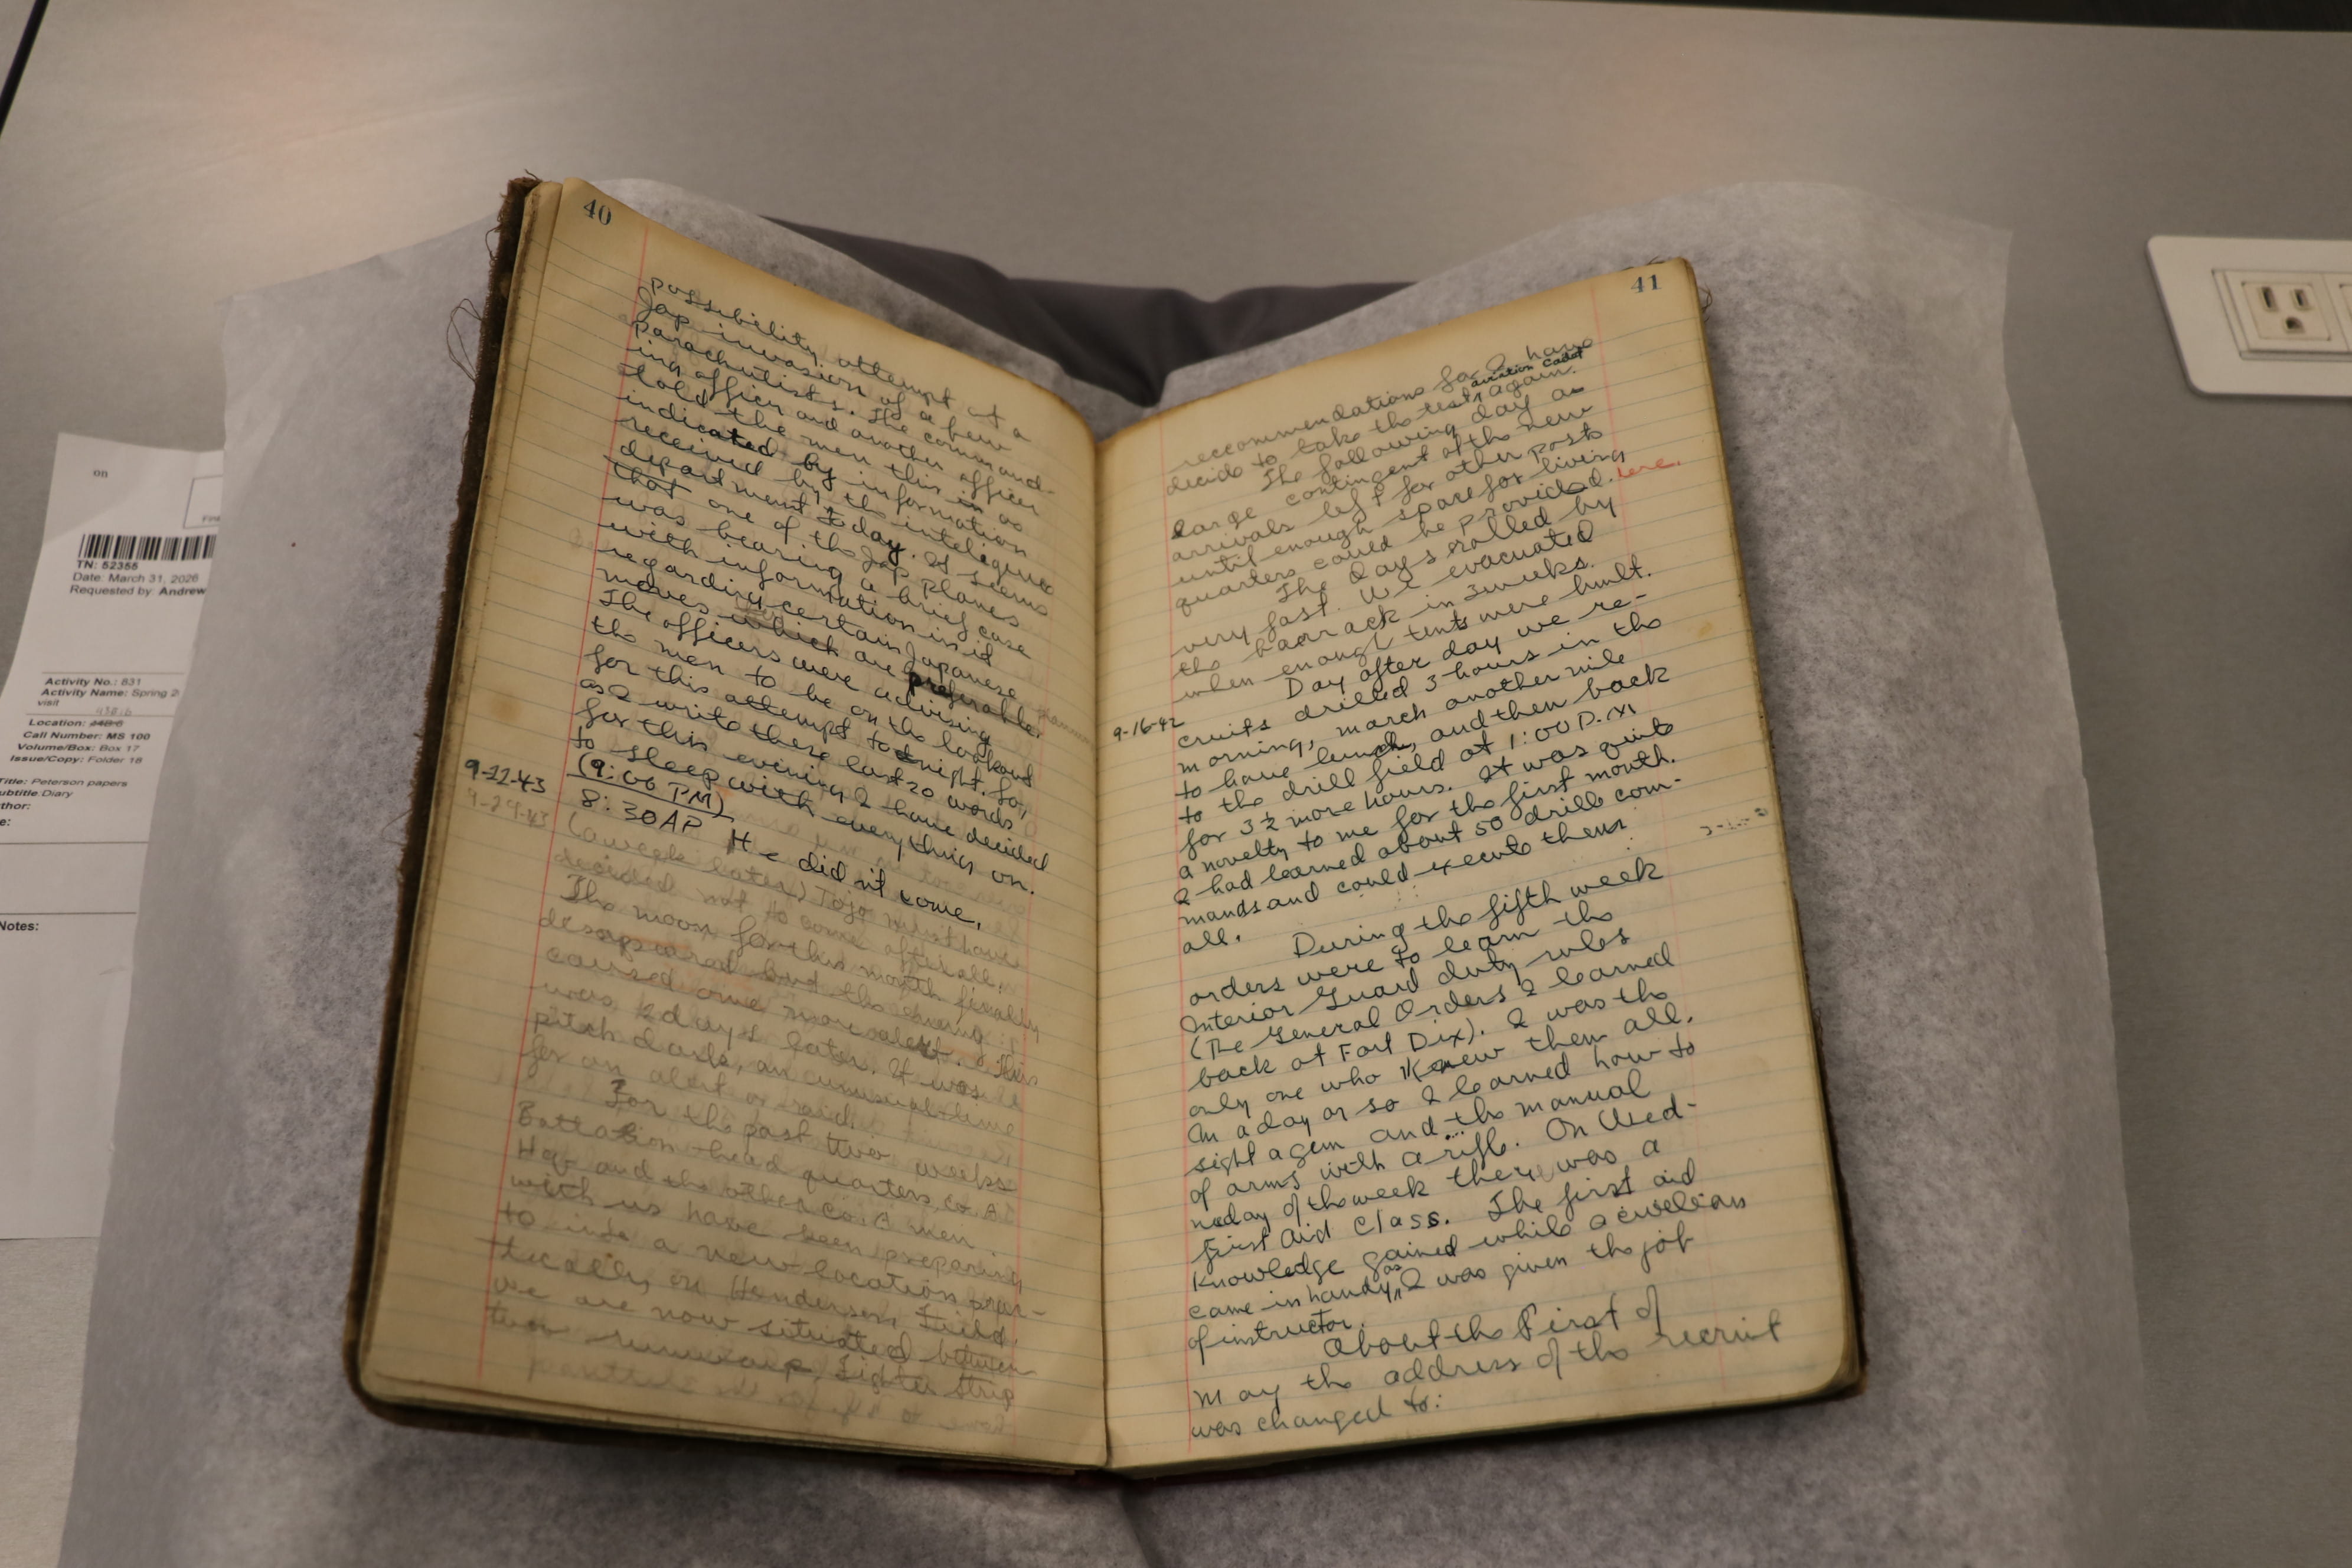 40
possibility attempt at a
Jap invasion of a few
parachutists. The command-
ing officer and another officer
told the men this is as
indicated by information
received by the inteleguns
department today. It seems
that one of the Jap planes
was bearing a brief case
with information in it
regarding certain Japanese
moves which are preferable
The officers were advising
the men to be on the lookout
for this attempt tonight. So,
as I write these last 20 words
for this evening I have decided
to sleep with everything on.
(9:00 PM)
9-22-43
8:30AP He did nt come,
9-29-43
(a week later) Tojo must have
decided not to come after all.
The moon for this month finally
dissapeared but the
caused one more alert. This
was 2 days later. It was
pitch dark, an unusual time
for an alert or raid.
For the past two weeks
Battalion head quarters, co. A
Hq. and the other co. A men
with us have been preparing
to a new location prac-
tically on Henderson Field.
we are now situated between
two fighter strip
41
reccommendations for I have
decide to take the test aviation cadet again.
The following day a
large contingent of the new
arrivals left for other posts
until enough space for living
quarters could be provided. here.
The days rolled by
very fast. We evacuated
the barrack in 3 weeks.
when enough tents were built.
Day after day we re-
9-16-42
cruits drilled 3 hours in the
morning, march another mile
to have lunch, and then back
to the drill field at 1:00 P.M
for 3½ more hours. It was quite
a novelty to me for the first month.
I had learned about 50 drill com-
mands and could execute them
all.
During the fifth week
orders were to learn the
Interior Guard duty rules
(The General Orders I learned
back at Fort Dix). I was the
only one who Knew them all.
In a day or so I learned how to
sight a gun and the manual
of arms with a rifle. On Wed-
nesday of the week there was a
first aid Class. The first aid
Knowledge gained while a civilian
came in handy, as I was given the job
of instructor.
About the First of
May the address of the recruit
was changed to:
on
TN: 52355
Date: March 31, 2026
Requested by: Andrew
Activity No.: 831
Activity Name: Spring 2
visit
Location:
Call Number: MS 100
Volume/Box: Box 17
Issue/Copy: Folder 18
Title: Peterson papers
ubtitle:Diary
thor:
e:
Notes: